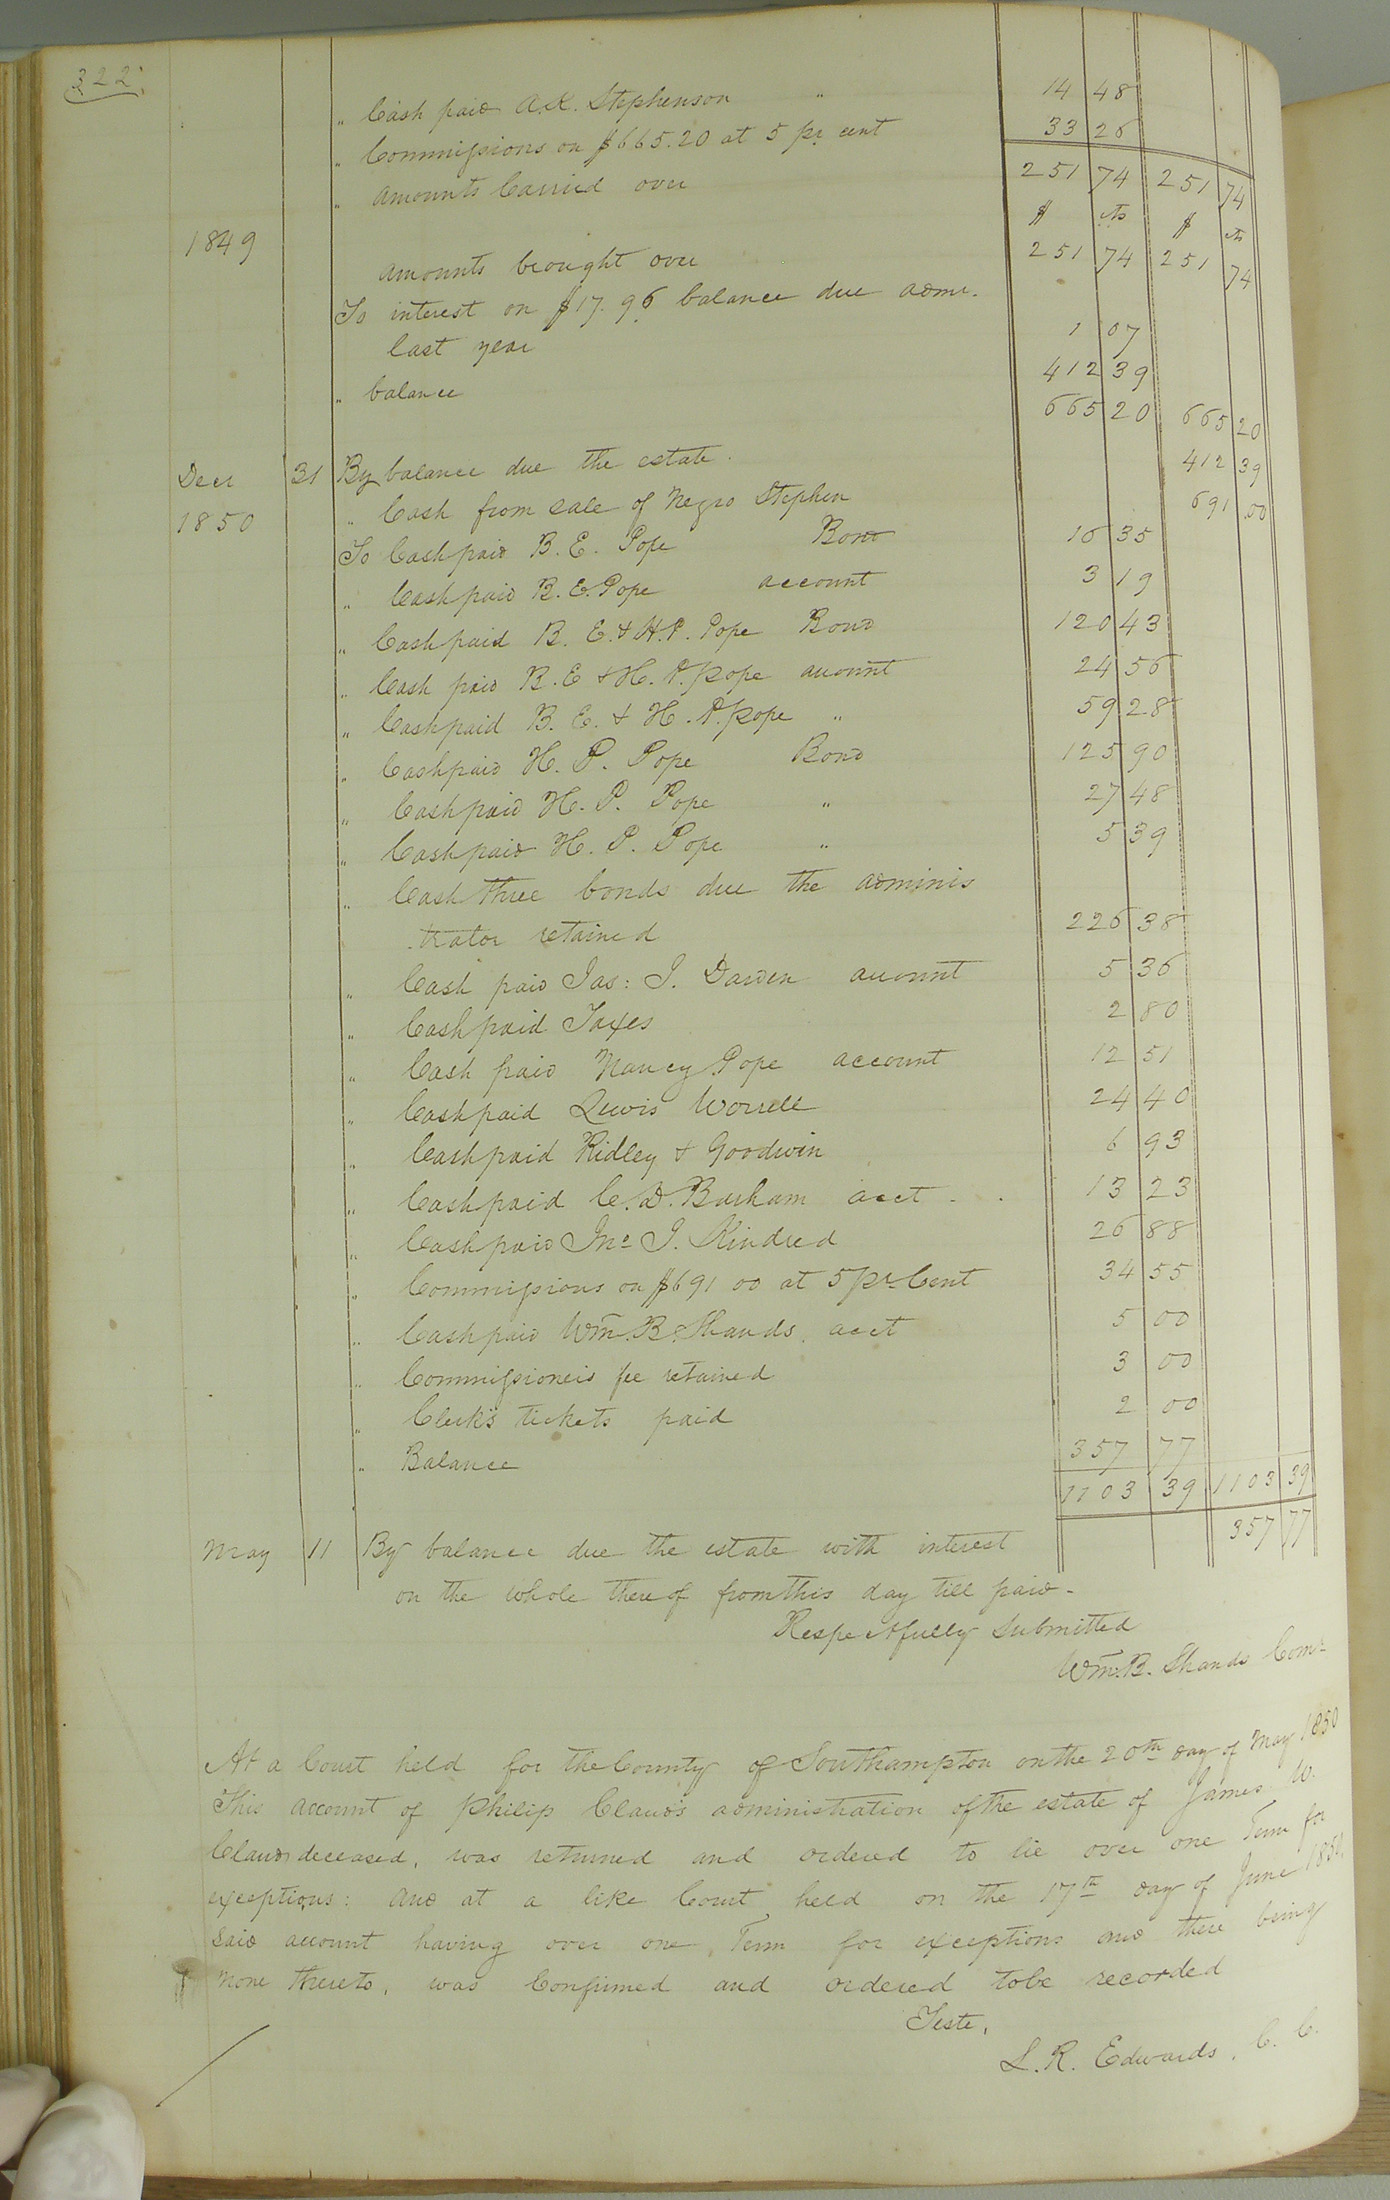 322
" Cash paid A.K. Stephenson " 14 48
" Commissions on $665.20 at 5 pr cent 33 26
" amounts Carried over 251 74 251 74
$ cts $ cts
1849 amounts brought over 251 74 251 74
To interest on $17.96 balance due admr.
last year 1 07
" balance 412 39
665 20 665 20
Decr 31 By balance due the estate. 412 39
1850 " Cash from sale of Negro Stephen 691 00
To Cash paid B. E. Pope Bond 16 35
" Cash paid B. E. Pope account 3 19
" Cash paid B. E. & H. P. Pope Bond 120 43
" Cash paid B. E & H. P. pope account 24 56
" Cash paid B. E. & H. P. pope " 59 28
" Cash paid H. P. Pope Bond 125 90
" Cash paid H. P. Pope " 27 48
" Cash paid H. P. Pope " 5 39
" Cash three bonds due the adminis
trator retained 226 38
" Cash paid Jas: J. Darden account 5 36
" Cash paid Taxes 2 80
" Cash paid Nancy Pope account 12 51
" Cash paid Lewis Worrell 24 40
" Cash paid Ridley & Goodwin 6 93
" Cash paid C. D. Barham acct - . 13 23
" Cash paid Jno. J. Kindred 26 88
" Commissions on $691 00 at 5 pr Cent 34 55
" Cash paid Wm. B. Shands, acct 5 00
" Commissioneis fee retained 3 00
" Clerk's tickets paid 2 00
" Balance 357 77
1103 39 1103 39
May 11 By balance due the estate with interest 357 77
on the whole thereof from this day till paid -
Respectfully Submitted
Wm. B. Shands Comr
At a Court held for the County of Southampton on the 20th day of May 1850
This account of Philip Claud's administration of the estate of James W.
Claud deceased, was returned and ordered to lie over one Term for
exceptions: and at a like Court held on the 17th day of June 1850,
said account having over one Term for exceptions and there being
none thereto, was Confirmed and ordered to be recorded
Teste,
L. R. Edwards, C. C.